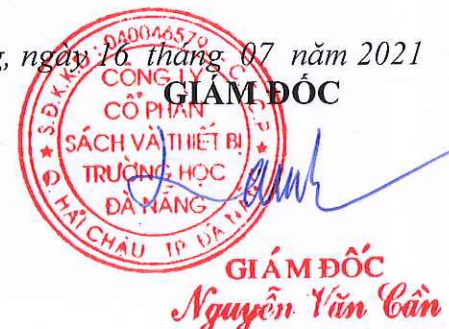 , ngày 16 tháng 07 năm 2021
GIÁM ĐỐC
S.Đ.K.K.D: 040046579 C.T.C.P
CÔNG TY
CỔ PHẦN
SÁCH VÀ THIẾT BỊ
TRƯỜNG HỌC
ĐÀ NẴNG
Q. HẢI CHÂU TP ĐÀ NẴNG
GIÁM ĐỐC
Nguyễn Văn Cần